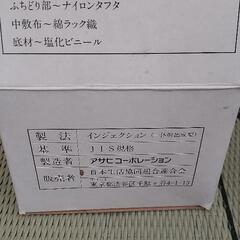 ふちどり部～ナイロンタフタ
中敷布～綿ラック織
底材～塩化ビニール
製法 インジェクション
基準 JIS規格
製造者 アサヒコーポレーション
販売者 日本生活協同組合連合会
東京都渋谷区千駄ヶ谷4-1-13